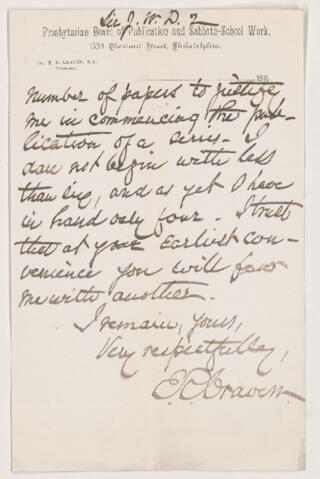 Sir J. W. D. 2
Presbyterian Board of Publication and Sabbath-School Work,
1334 Chestnut Street, Philadelphia.
REV. E. R. CRAVEN, D.D.,
SECRETARY.
189
number of papers to justify
me in commencing the pub-
lication of a series. I
dare not begin with less
than six, and as yet I have
in hand only four. I trust
that at your earliest con-
venience you will favor
me with another.
I remain, yours,
Very respectfully,
E. R. Craven.